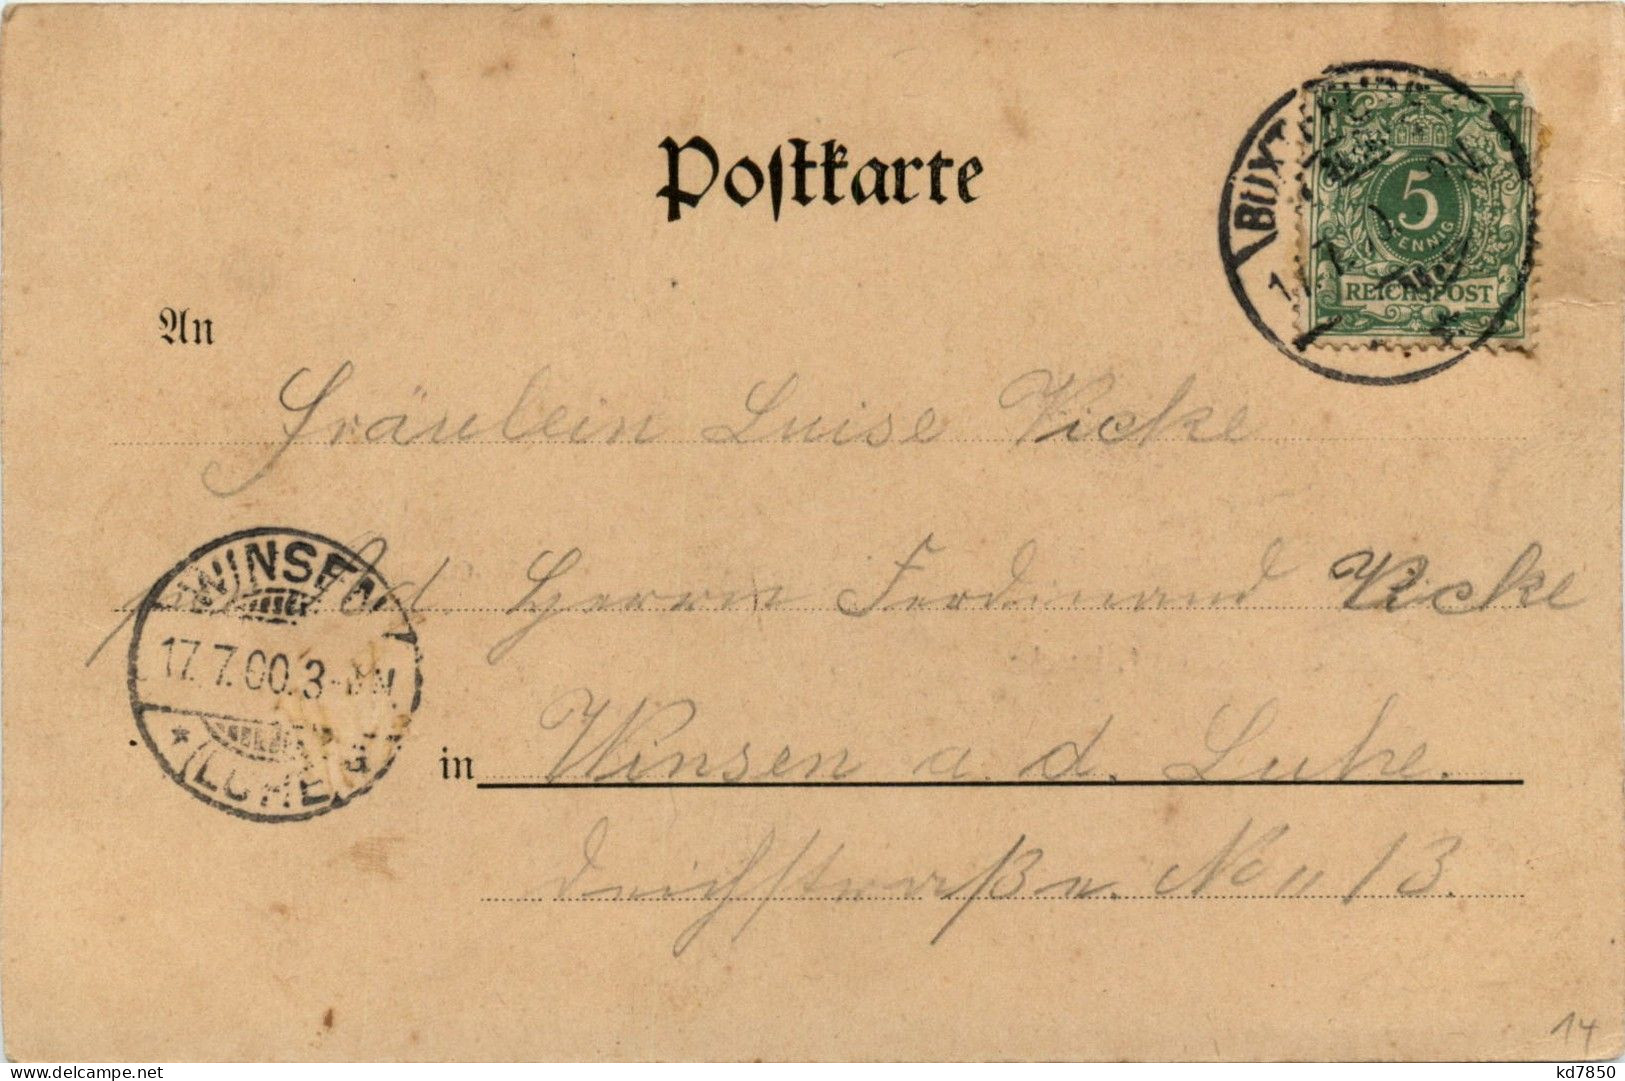 Postkarte
BUXTEHUDE
5
PFENNIG
REICHSPOST
An
Fräulein Luise Vicke
p. Ad. Herrn Ferdinand Vicke
WINSEN
17.7.00.3-4N
(LUHE)
in Winsen a. d. Luhe.
Deichstraße. No 13.
14
delcampe.net
kd7850